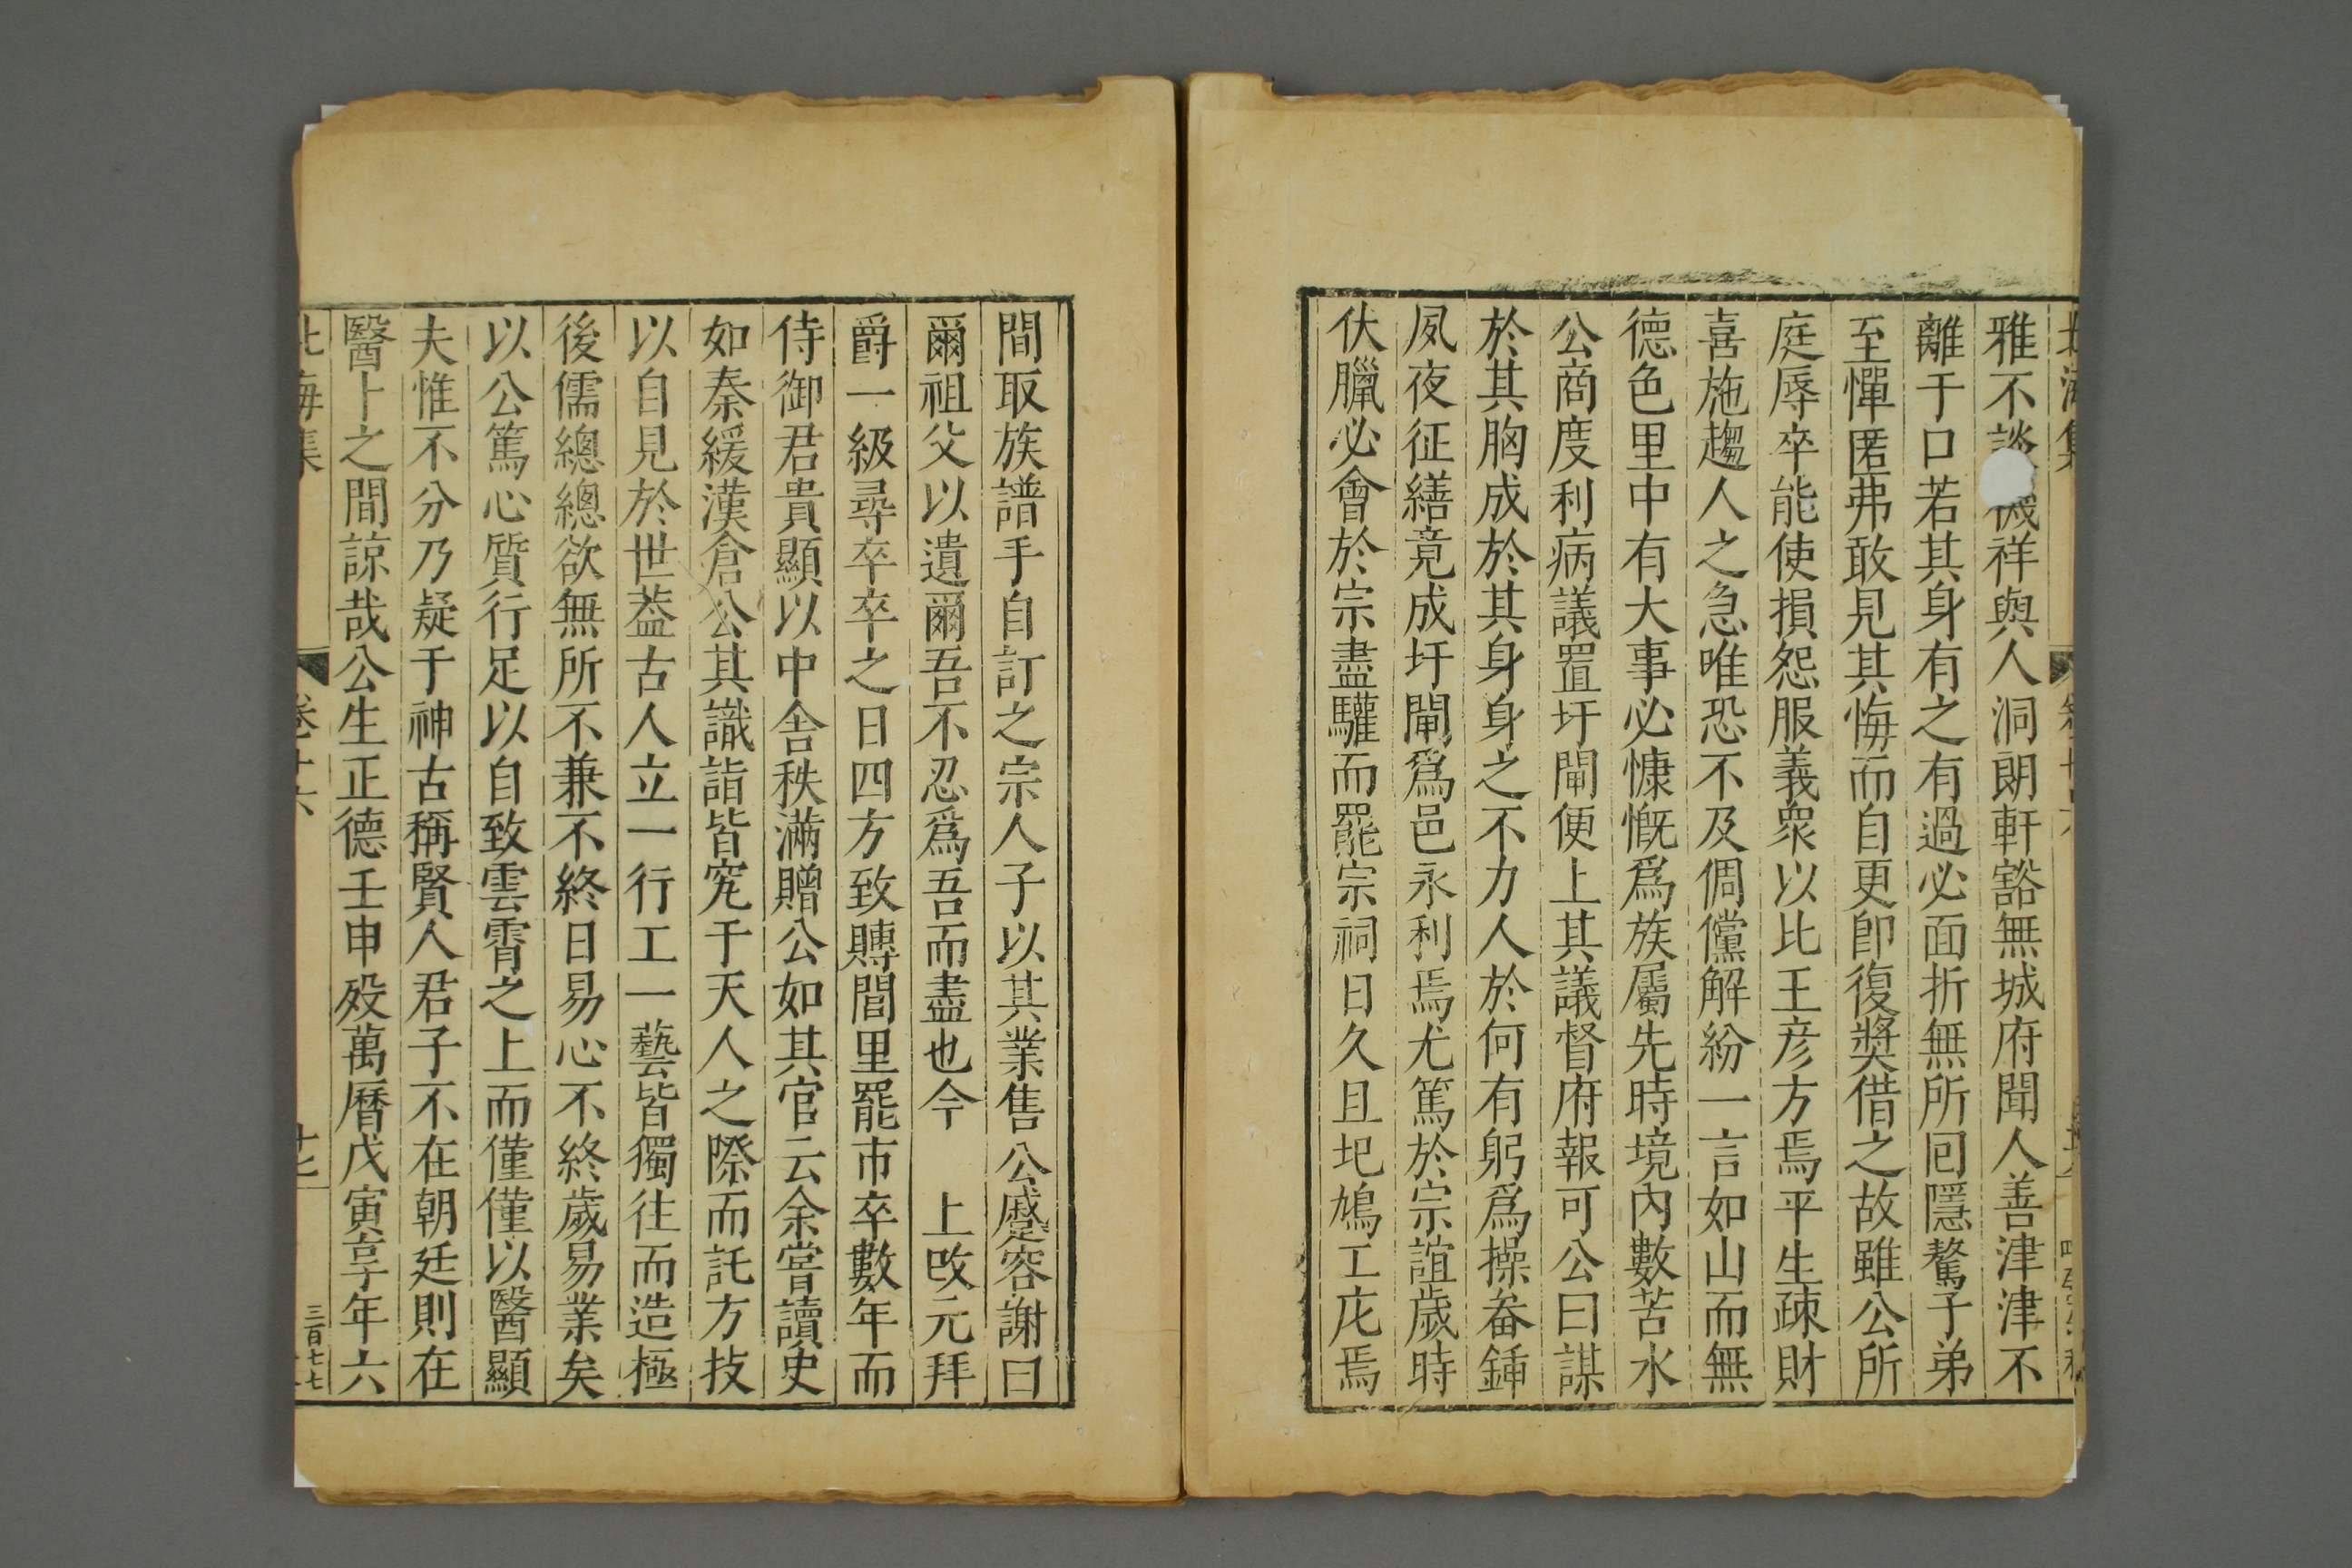 雅不談禨祥與人洞朗軒豁無城府聞人善津津不
離于口若其身有之有過必面折無所回隱驁子弟
至憚匿弗敢見其悔而自更卽復獎借之故雖公所
庭辱卒能使損怨服義衆以比王彦方焉平生疎財
喜施趨人之急唯恐不及倜儻解紛一言如山而無
德色里中有大事必慷慨爲族屬先時境內數苦水
公商度利病議置圩閘便上其議督府報可公曰謀
於其胸成於其身身之不力人於何有躬爲操畚鍤
夙夜征繕竟成圩閘爲邑永利焉尤篤於宗誼歲時
伏臘必會於宗盡驩而罷宗祠日久且圮鳩工庀焉
間取族譜手自訂之宗人子以其業售公蹙容謝曰
爾祖父以遺爾吾不忍爲吾而盡也今 上改元拜
爵一級尋卒卒之日四方致賻閭里罷市卒數年而
侍御君貴顯以中舍秩滿贈公如其官云余嘗讀史
如秦緩漢倉公其識詣皆宄于天人之際而託方技
以自見於世葢古人立一行工一藝皆獨往而造極
後儒總總欲無所不兼不終日易心不終歲易業矣
以公篤心質行足以自致雲霄之上而僅僅以醫顯
夫惟不分乃疑于神古稱賢人君子不在朝廷則在
醫卜之間諒哉公生正德壬申殁萬曆戊寅享年六
北海集
卷十六
廿七
三百七七